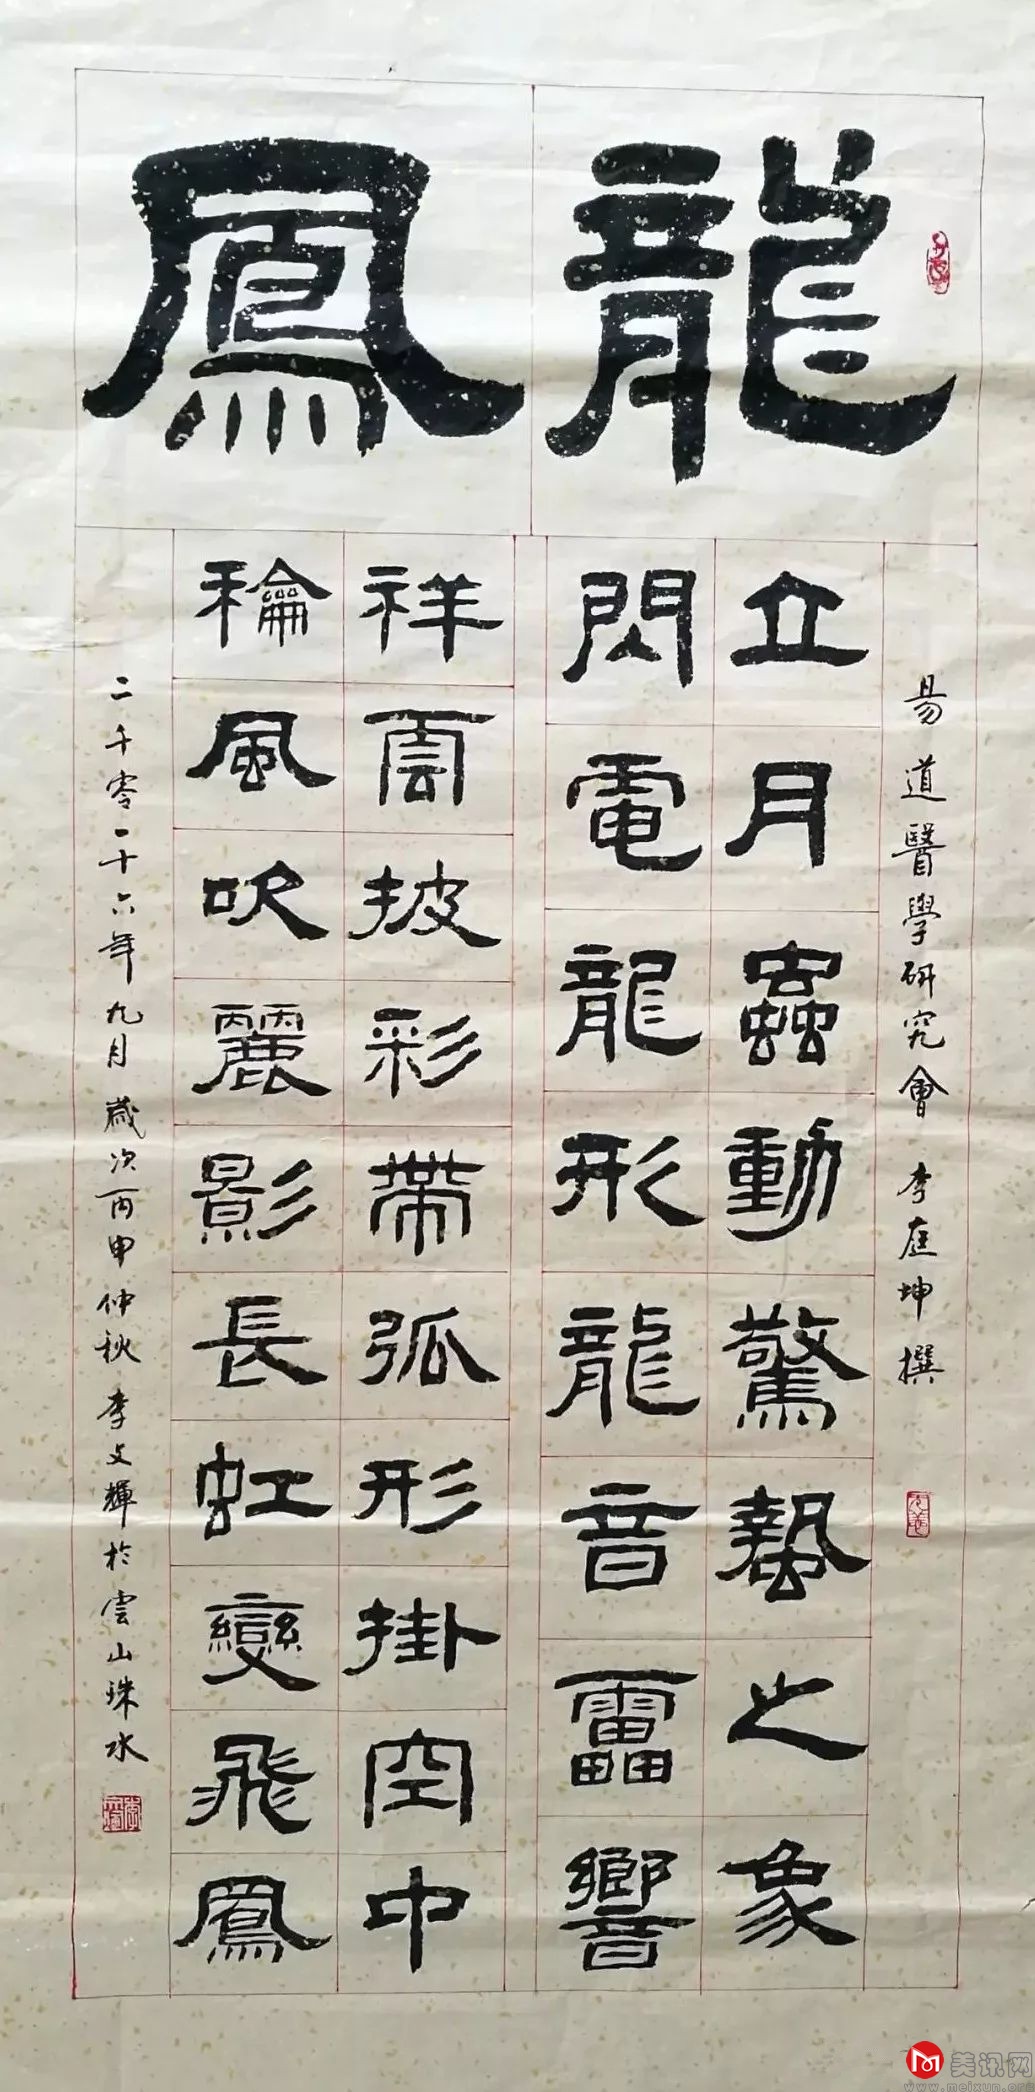 龍鳳
易道醫學研究會 李庭坤撰
立月蟲動驚蟄之象
閃電龍形龍音靁響
祥雲披彩帶弧形掛空中
龢風吹麗影長虹變飛鳳
二千零一十六年九月歲次丙申仲秋李文輝於雲山珠水
美讯网
www.meixun.org